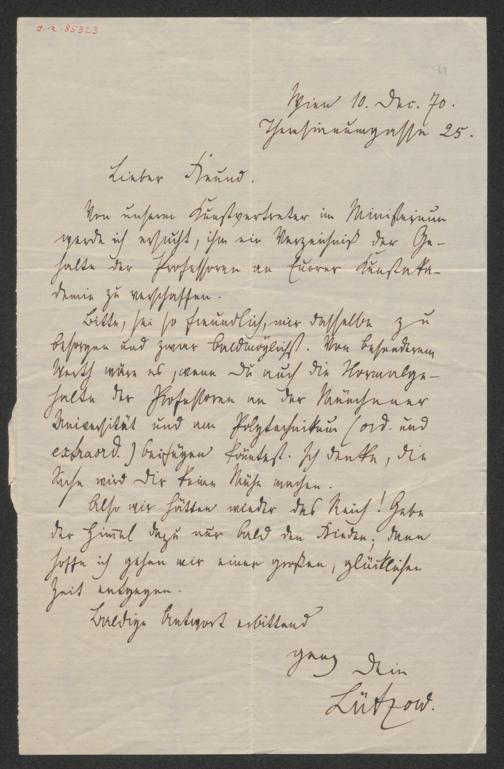 J. N. 85323
Wien 10. Dec. 70.
Theresianumgasse 25.
Lieber Freund.
Von unserm Kunstvertreter im Ministerium
werde ich ersucht, ihm ein Verzeichniß der Ge-
halte der Professoren an Eurer Kunstaka-
demie zu verschaffen.
Bitte, sei so freundlich, mir dasselbe zu
besorgen und zwar baldmöglichst. Von besonderem
Werth wäre es, wenn Du auch die Normalge-
halte der Professoren an der Münchener
Universität und am Polytechnikum (ord. und
extraord.) beifügen könntest. Ich denke, die
Sache wird Dir keine Mühe machen.
Also wir hätten wieder das Reich! Gebe
der Himmel dazu nur bald den Frieden; dann
hoffe ich gehen wir einer großen, glücklichen
Zeit entgegen.
Baldige Antwort erbittend
ganz Dein
Lützow.